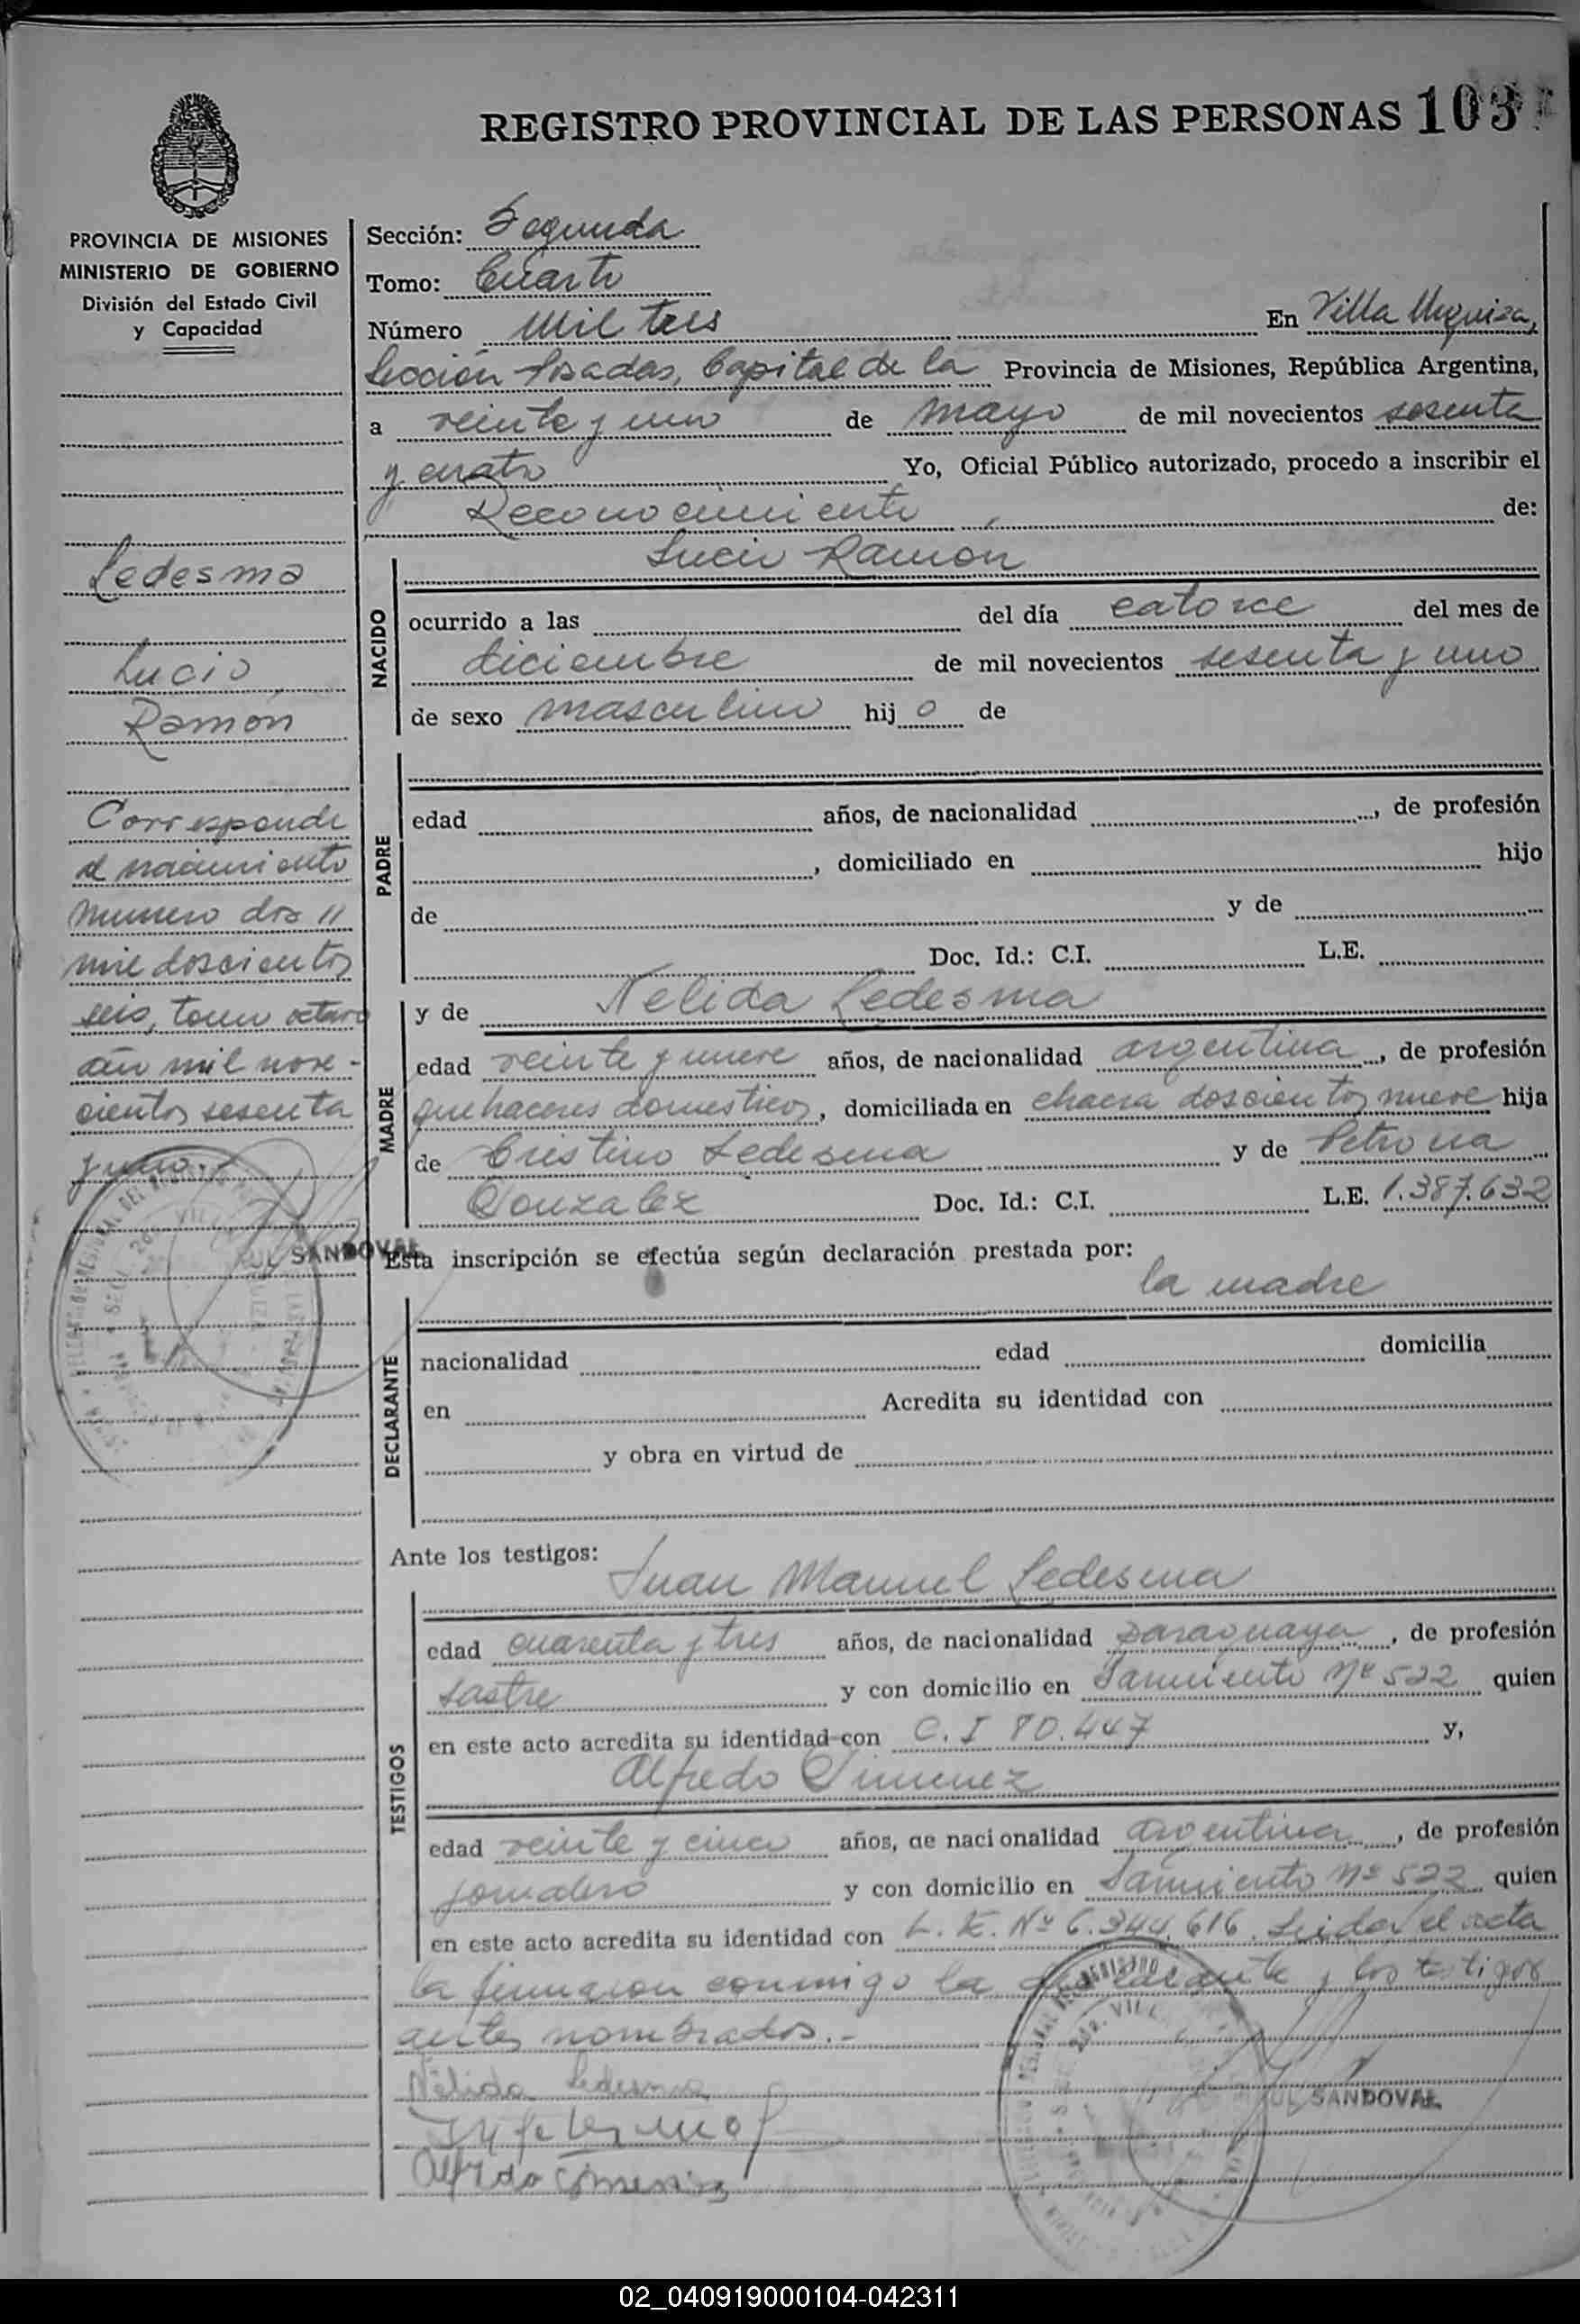 REGISTRO PROVINCIAL DE LAS PERSONAS 103
PROVINCIA DE MISIONES
MINISTERIO DE GOBIERNO
División del Estado Civil
y Capacidad
Ledesma
Lucio
Ramón
Corresponde
al nacimiento
numero dos //
mil doscientos
seis, tomo octavo
año mil nove-
cientos sesenta
y uno.
SANDOVAL
Sección: Segunda
Tomo: Cuarto
Número mil tres En Villa Urquiza,
Sección Posadas, Capital de la Provincia de Misiones, República Argentina,
a veinte y uno de mayo de mil novecientos sesenta
y cuatro Yo, Oficial Público autorizado, procedo a inscribir el
Reconocimiento de:
NACIDO
Lucio Ramon
ocurrido a las del día catorce del mes de
diciembre de mil novecientos sesenta y uno
de sexo masculino hijo de
PADRE
edad años, de nacionalidad , de profesión
, domiciliado en hijo
de y de
Doc. Id.: C.I. L.E.
MADRE
y de Nelida Ledesma
edad veinte y nueve años, de nacionalidad argentina, de profesión
quehaceres domesticos, domiciliada en chacra doscientos nueve hija
de Cristino Ledesma y de Petrona
Gonzalez Doc. Id.: C.I. L.E. 1.387.632
Esta inscripción se efectúa según declaración prestada por:
la madre
DECLARANTE
nacionalidad edad domicilia
en Acredita su identidad con
y obra en virtud de
Ante los testigos:
Juan Manuel Ledesma
TESTIGOS
edad cuarenta y tres años, de nacionalidad paraguaya, de profesión
sastre y con domicilio en Sarmiento Nº 522 quien
en este acto acredita su identidad con C. I 80.447 y,
Alfredo Gimenez
edad veinte y cinco años, de nacionalidad argentina, de profesión
jornalero y con domicilio en Sarmiento Nº 522 quien
en este acto acredita su identidad con L. E. Nº 6.344.616. Leida el acta
la firmaron conmigo la declarante y los testigos
antes nombrados.-
Nélida Ledesma
SANDOVAL
Alfredo Gimenez
02_040919000104-042311